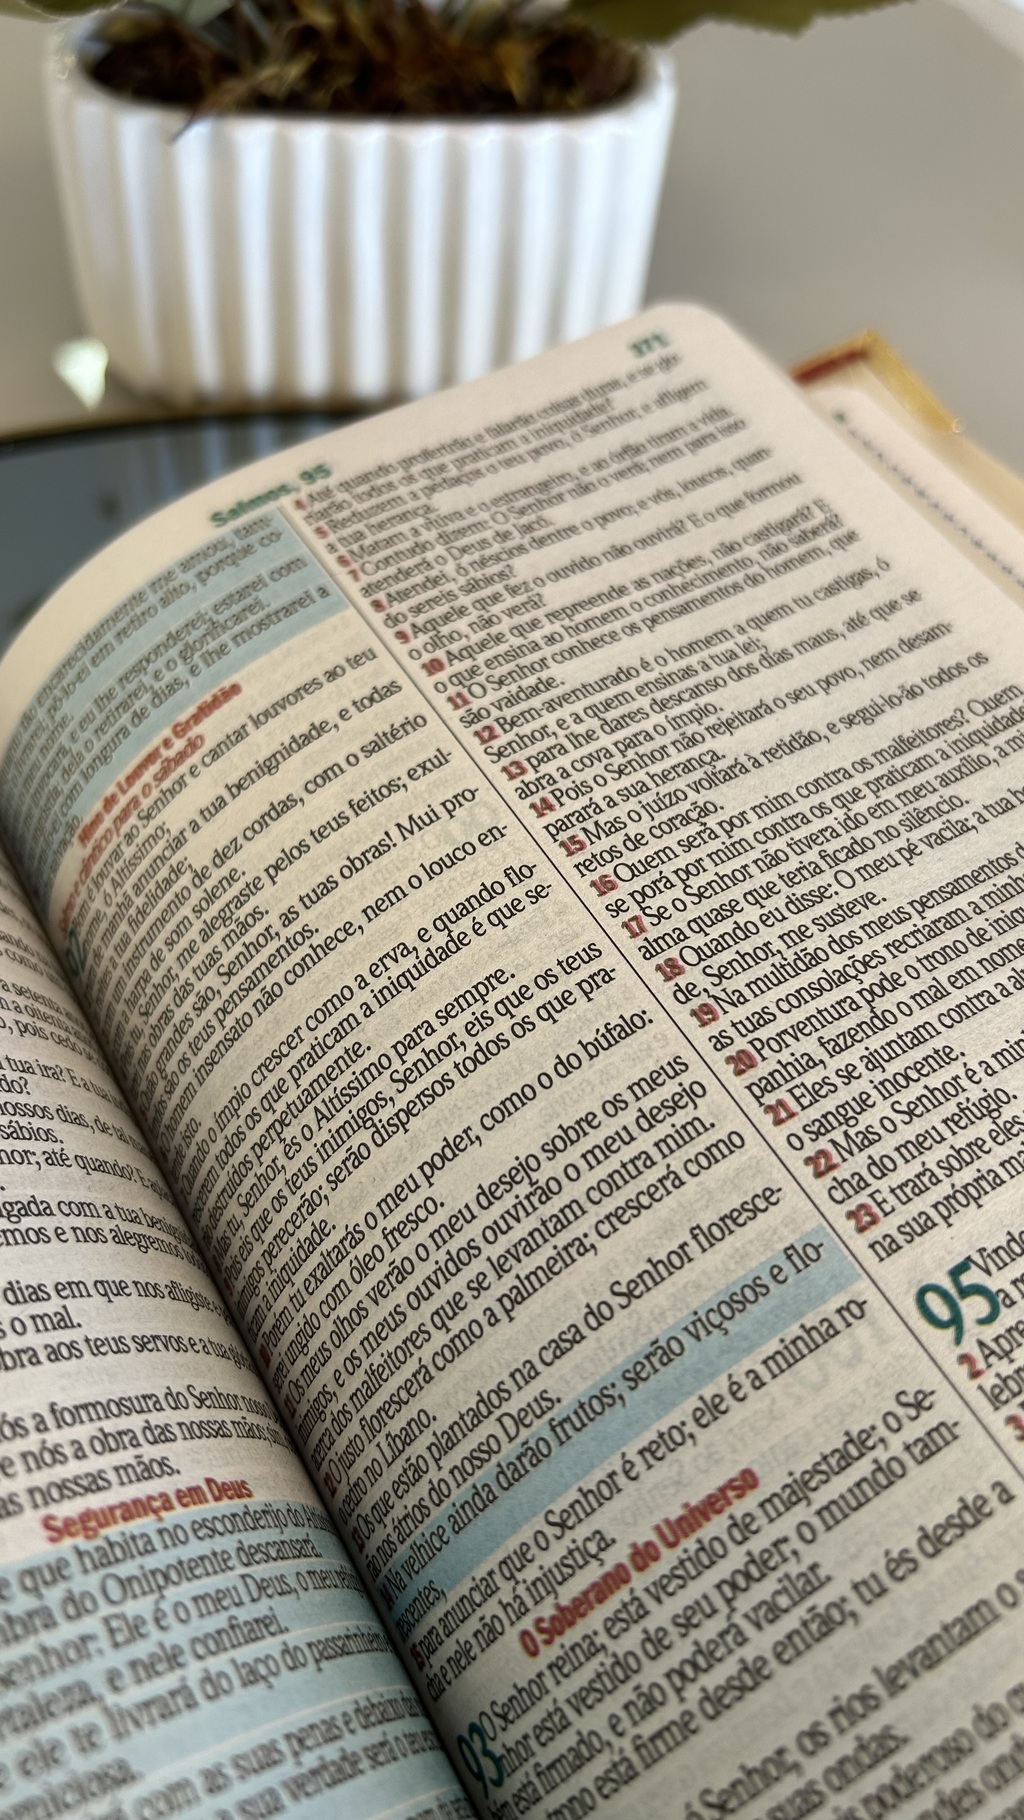 Salmos, 95
371
dando
e como
a setenta
a oitenta
, pois cedo se
tua ira? E a tua
do?
nossos dias, de tal
sábios.
nhor; até quando?
gada com a tua
emos e nos alegremos
dias em que nos afligiste
s o mal.
bra aos teus servos e a tua
ós a formosura do Senhor nosso
e nós a obra das nossas mãos;
as nossas mãos.
Segurança em Deus
e que habita no esconderijo do
mbra do Onipotente descansará.
senhor: Ele é o meu Deus, o meu
rtaleza, e nele confiarei.
e ele te livrará do laço do
erniciosa.
com as suas penas e debaixo
a sua verdade será o teu
encarecidamente me amou, tam-
pô-lo-ei em retiro alto, porque co-
nome.
e eu lhe responderei; estarei com
dela o retirarei, e o glorificarei.
com longura de dias, e lhe mostrarei a
Hino de Louvor e Gratidão
e cântico para o sábado
louvar ao Senhor e cantar louvores ao teu
ó Altíssimo;
manhã anunciar a tua benignidade, e todas
tua fidelidade;
instrumento de dez cordas, com o saltério
harpa de som solene.
tu, Senhor, me alegraste pelos teus feitos; exul-
nas obras das tuas mãos.
grandes são, Senhor, as tuas obras! Mui pro-
são os teus pensamentos.
homem insensato não conhece, nem o louco en-
isto.
Quando o ímpio crescer como a erva, e quando flo-
rescerem todos os que praticam a iniquidade é que se-
destruídos perpetuamente.
Mas tu, Senhor, és o Altíssimo para sempre.
Pois eis que os teus inimigos, Senhor, eis que os teus
inimigos perecerão; serão dispersos todos os que pra-
a iniquidade.
10 Porém tu exaltarás o meu poder, como o do búfalo:
serei ungido com óleo fresco.
11 Os meus olhos verão o meu desejo sobre os meus
inimigos, e os meus ouvidos ouvirão o meu desejo
acerca dos malfeitores que se levantam contra mim.
12 O justo florescerá como a palmeira; crescerá como
o cedro no Líbano.
13 Os que estão plantados na casa do Senhor floresce-
rão nos átrios do nosso Deus.
14 Na velhice ainda darão frutos; serão viçosos e flo-
rescentes,
15 para anunciar que o Senhor é reto; ele é a minha ro-
cha e nele não há injustiça.
O Soberano do Universo
93 O Senhor reina; está vestido de majestade; o Se-
nhor está vestido de seu poder; o mundo tam-
bém está firmado, e não poderá vacilar.
trono está firme desde então; tu és desde a
Senhor, os rios levantam o s
suas ondas.
poderoso do q
4 Até quando proferirão e falarão coisas duras, e se glo-
riarão todos os que praticam a iniquidade?
5 Reduzem a pedaços o teu povo, ó Senhor, e afligem
a tua herança.
6 Matam a viúva e o estrangeiro, e ao órfão tiram a vida.
7 Contudo dizem: O Senhor não o verá; nem para isso
atenderá o Deus de Jacó.
8 Atendei, ó néscios dentre o povo; e vós, loucos, quan-
do sereis sábios?
9 Aquele que fez o ouvido não ouvirá? E o que formou
o olho, não verá?
10 Aquele que repreende as nações, não castigará? E
o que ensina ao homem o conhecimento, não saberá?
11 O Senhor conhece os pensamentos do homem, que
são vaidade.
12 Bem-aventurado é o homem a quem tu castigas, ó
Senhor, e a quem ensinas a tua lei;
13 para lhe dares descanso dos dias maus, até que se
abra a cova para o ímpio.
14 Pois o Senhor não rejeitará o seu povo, nem desam-
parará a sua herança.
15 Mas o juízo voltará à retidão, e segui-lo-ão todos os
retos de coração.
16 Quem será por mim contra os malfeitores? Quem
se porá por mim contra os que praticam a iniquidade
17 Se o Senhor não tivera ido em meu auxílio, a mi
alma quase que teria ficado no silêncio.
18 Quando eu disse: O meu pé vacila; a tua b
de, Senhor, me susteve.
19 Na multidão dos meus pensamentos d
as tuas consolações recriaram a minh
20 Porventura pode o trono de iniq
panhia, fazendo o mal em nome
21 Eles se ajuntam contra a al
o sangue inocente.
22 Mas o Senhor é a min
cha do meu refúgio.
23 E trará sobre eles
na sua própria ma
95 Vinde
a r
2 Apre
lebr
3